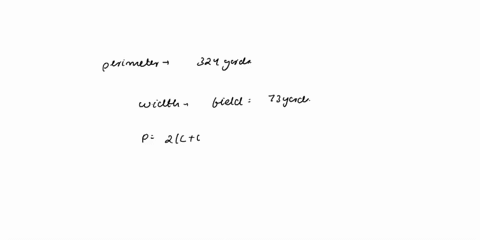 perimeter → 324 yards
width → field = 73 yards.
P = 2(L+(